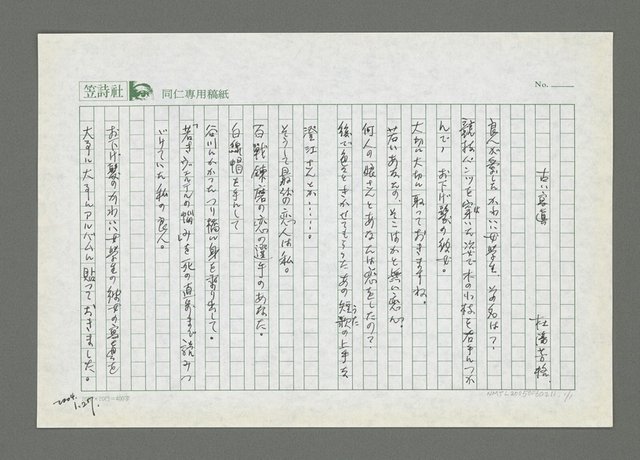 笠詩社
同仁専用稿紙
No.
古い写真
杜潘芳格
良人が愛したかわいい女学生、その名は?
競技パンツを穿いた姿で木の小枝を右手につか
んで、お下げ髪の彼女。
大切に大切に取っておきますね。
若いあなたの、そこはかと無い恋心。
何人の娘さんとあなたは恋をしたの?
後で色々ときかせてもらったあの短歌の上手な
うた
澄江さんとか……。
そうして最后の恋人は私。
百戦錬磨の恋の選手のあなた。
白線帽を手にして
谷川にかかったつり橋に身を乗り出して。
「若きウェルテルの悩み」を死の直前まで読みつ
づけていた私の良人。
お下げ髪のかわいい女学生の彼女の写真を
大事に大事にアルバムに貼っておきました。
2004.
1.27.
20=400字
NMTL20050030211
1/1